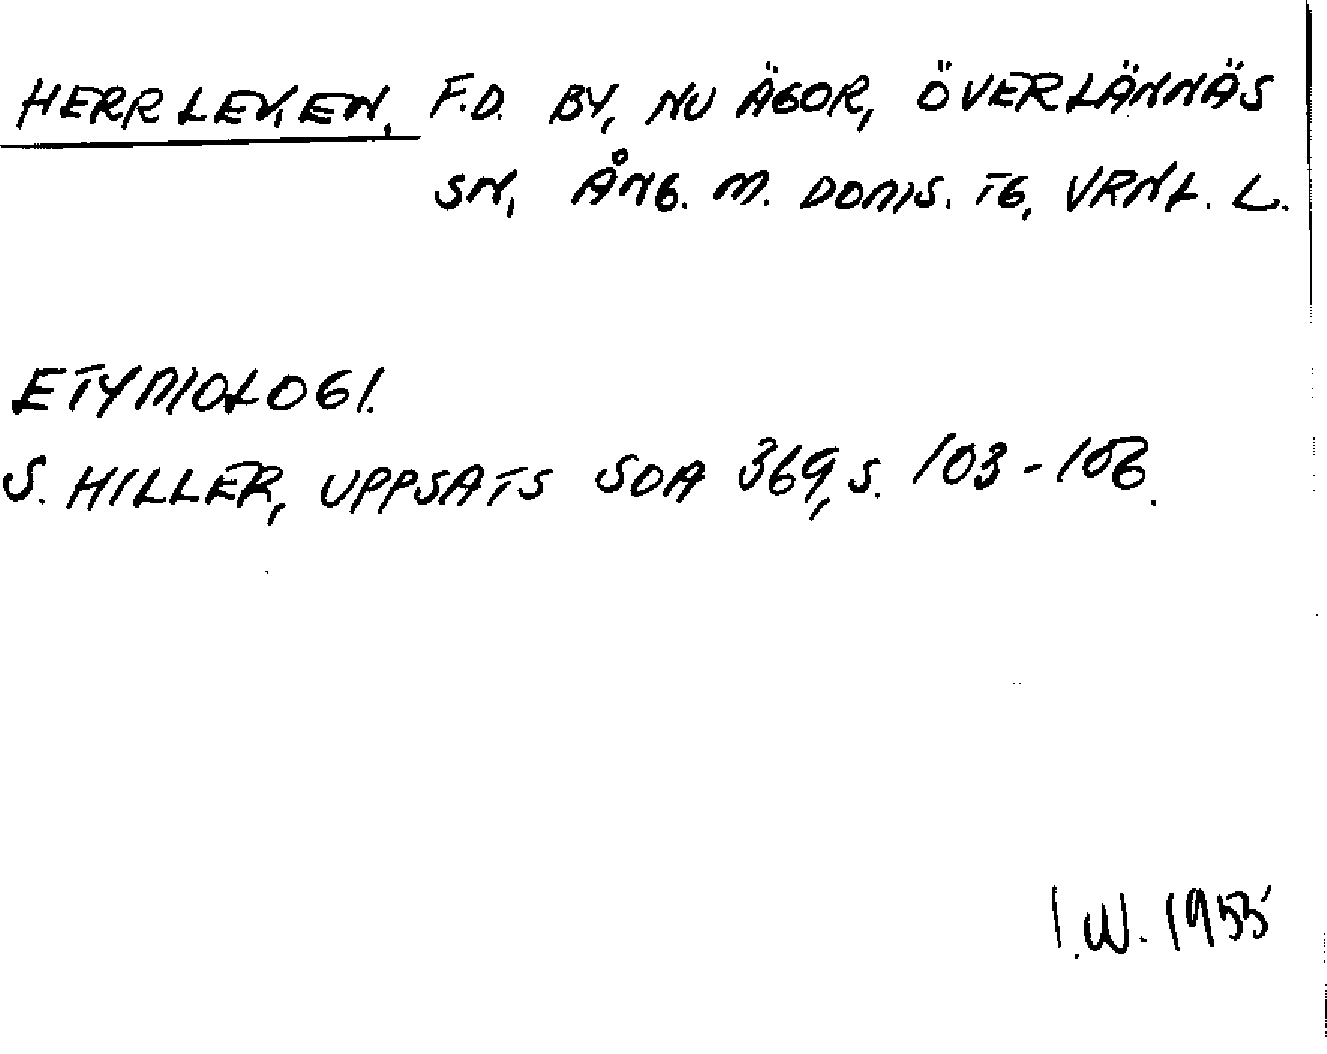 HERRLEK, EN, F.D. BY, NU ÄGOR, ÖVERLÄNNÄS
SN, ÅNG. M. DOMS. TG, VRNL. L.
ETYMOLOGI.
S. HILLER, UPPSATS SOA 369, S. 103-106.
I.W. 1955